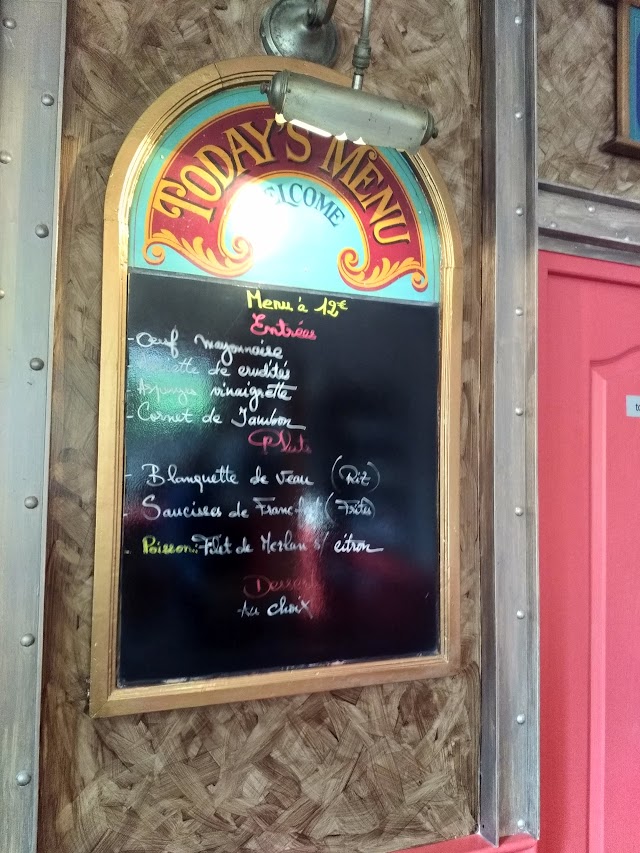 TODAY'S MENU
WELCOME
Menu à 12€
Entrées
- Œuf mayonnaise
de crudités
- Asperges vinaigrette
- Cornet de Jambon
Plats
- Blanquette de Veau (Riz)
- Saucisses de Francfort (Frites)
- Poisson: Filet de Merlan s/ citron
Desserts
Au choix